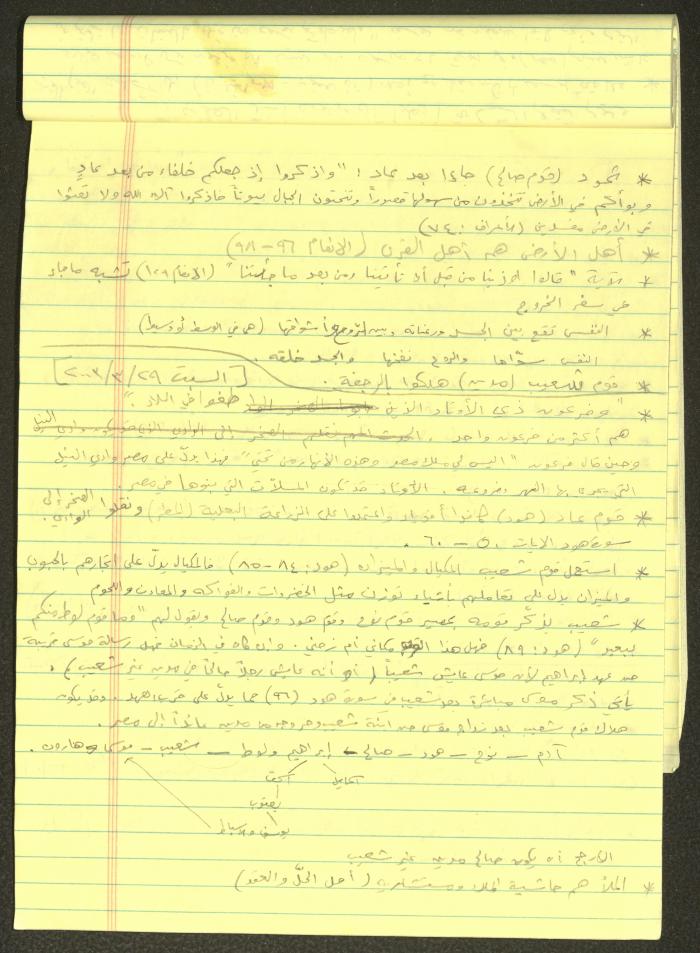 * ثمود (قوم صالح) جاءوا بعد عاد: "واذكروا إذ جعلكم خلفاء من بعد عادٍ
وبوأكم في الأرض تتخذون من سهولها قصوراً وتنحتون الجبال بيوتاً فاذكروا آلاء الله ولا تعثوا
في الأرض مفسدين (الأعراف: ٧٤)
* أهل الأرض هم أهل القرى (الانعام ٩٦ – ٩٨)
* الآية "قالوا أوذينا من قبل أن تأتينا ومن بعد ما جئتنا" (الانعام ١٢٩) تشبه ما جاء
في سفر الخروج
* النفس تقع بين الجسد ورغباته وبين الروح وأشواقها (هي في الوسط أو وسيط)
النفس سوّاها والروح نفخها والجسد خلقه.
* قوم شعيب (مدين) هلكوا بالرجفة. [السبت ٢٩/٣/٢٠٠٣]
* "وفرعون ذي الأوتاد الذين طغوا في البلاد".
هم أكثر من فرعون واحد.
وحين قال فرعون "أليس لي ملك مصر وهذه الأنهار من تحتي" فهذا يدلّ على مصر وادي النيل
التي يجري بها النهر وفروعه. الأوتاد قد تكون المسلّات التي بنوها في مصر.
* قوم عاد (هود) كانوا واعتمدوا على الزراعة البعلية (المطر) ونقلوا الصخر إلى الوادي.
سورة هود الآيات ٥٠ – ٦٠.
* استعمل قوم شعيب المكيال والميزان (هود: ٨٤ – ٨٥) فالمكيال يدلّ على اتجارهم بالحبوب
والميزان يدل على تعاملهم بأشياء توزن مثل الخضروات والفواكه والمعادن واللحوم
* شعيب يذكّر قومه بمصير قوم نوح وقوم هود وقوم صالح ويقول لهم "وما قوم لوط منكم
ببعيد" (هود: ٨٩) فهل هذا القرب مكاني أم زمني. وإن كان في الزمان فهل رسالة موسى قريبة
من عهد إبراهيم لأن موسى عايش شعيباً (أم أنه عايش رجلاً صالحاً في مدين غير شعيب).
يأتي ذكر موسى مباشرة بعد شعيب في سورة هود (٩٦) مما يدلّ على وقد يكون
هلاك قوم شعيب بعد زواج موسى من ابنة شعيب وخروجه من مدين عائداً إلى مصر.
آدم – نوح – هود – صالح – إبراهيم ولوط – شعيب – موسى وهارون.
اسماعيل اسحق
يعقوب
يوسف والأسباط
الأرجح أن يكون صالح مدين غير شعيب
* الملأ هم حاشية الملك ومستشاريه (أهل الحلّ والعقد)